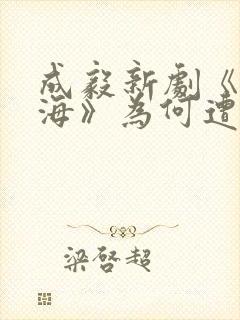 成毅新劇《
海》為何遭
梁啓超